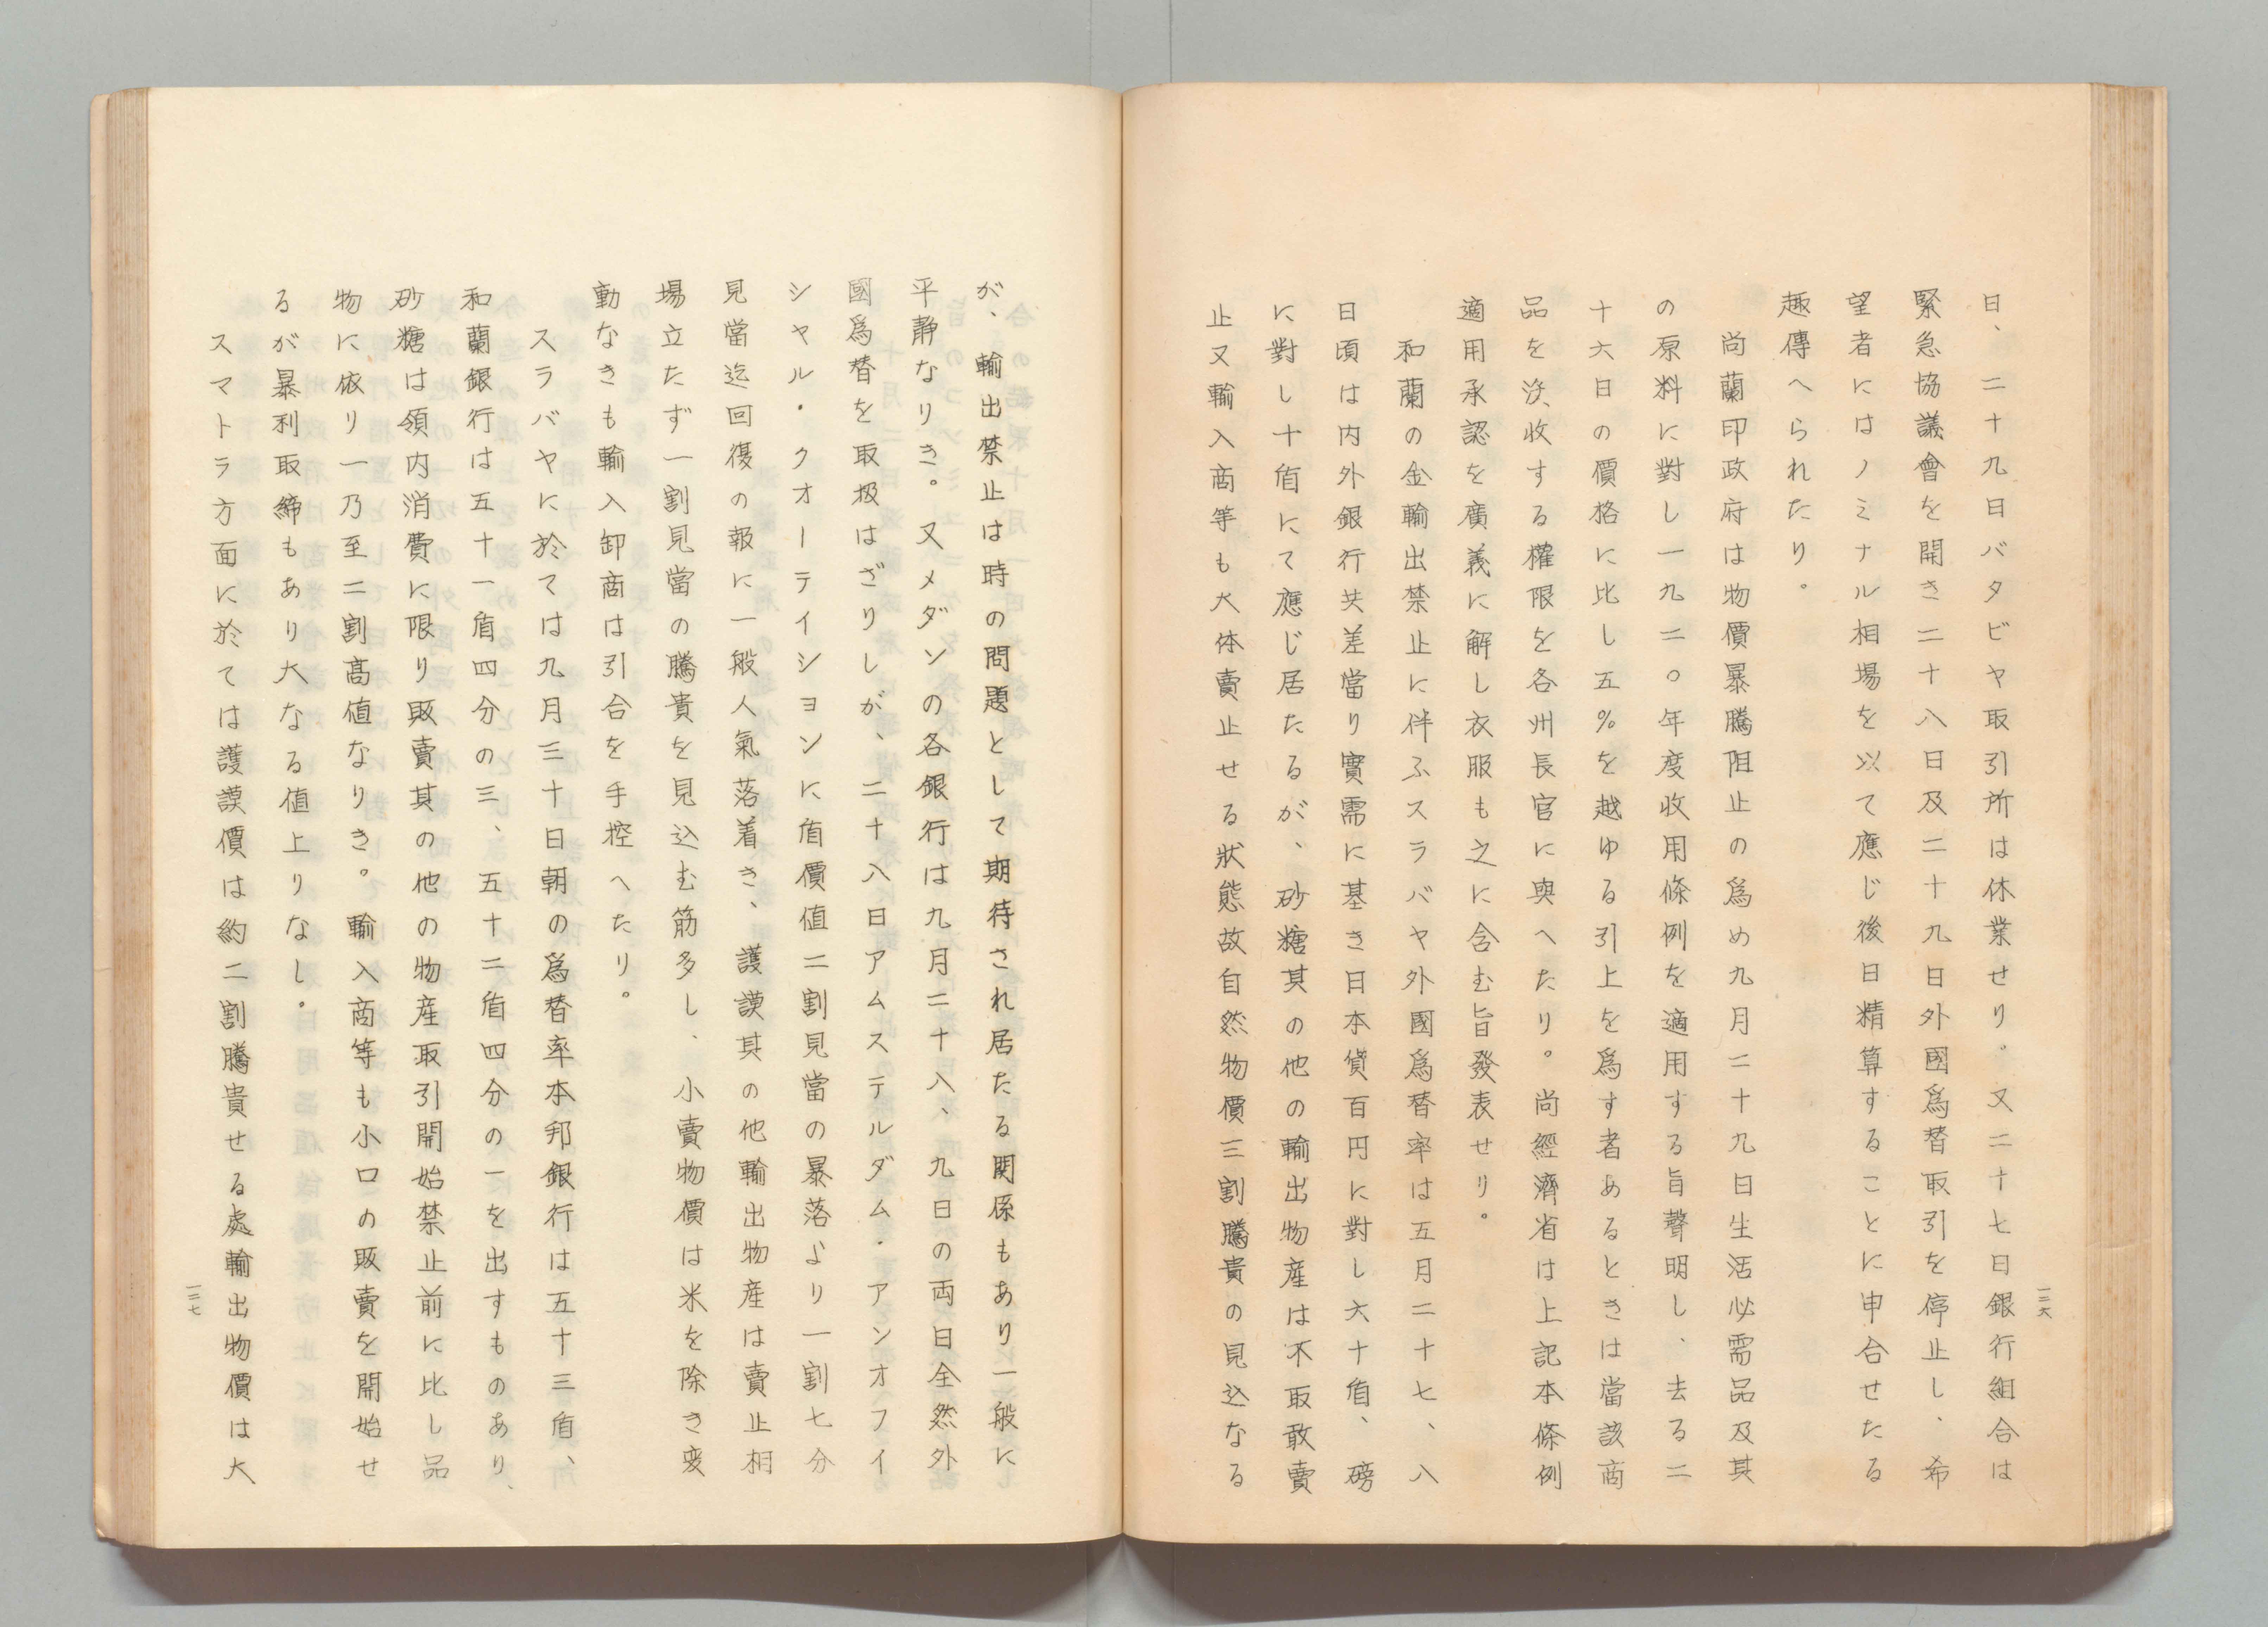 日、二十九日バタビヤ取引所は休業せり。又二十七日銀行組合は
緊急協議會を開き二十八日及二十九日外國爲替取引を停止し、希
望者にはノミナル相場を以て應じ後日精算することに申合せたる
趣傳へられたり。
尚蘭印政府は物價暴騰阻止の爲め九月二十九日生活必需品及其
の原料に對し一九二〇年度收用條例を適用する旨聲明し、去る二
十六日の價格に比し五%を越ゆる引上を爲す者あるときは當該商
品を沒收する權限を各州長官に與へたり。尚經濟省は上記本條例
適用承認を廣義に解し衣服も之に含む旨發表せり。
和蘭の金輸出禁止に伴ふスラバヤ外國爲替率は五月二十七、八
日頃は内外銀行共差當り實需に基き日本貨百円に對し六十盾、磅
に對し十盾にて應じ居たるが、砂糖其の他の輸出物産は不取敢賣
止又輸入商等も大体賣止せる狀態故自然物價三割騰貴の見込なる
一二六
が、輸出禁止は時の問題として期待され居たる関係もあり一般に
平静なりき。又メダンの各銀行は九月二十八、九日の両日全然外
國爲替を取扱はざりしが、二十八日アムステルダム・アンオフイ
シャル・クオーテイションに盾價値二割見當の暴落より一割七分
見當迄回復の報に一般人氣落着き、護謨其の他輸出物産は賣止相
場立たず一割見當の騰貴を見込む筋多し、小賣物價は米を除き変
動なきも輸入卸商は引合を手控へたり。
スラバヤに於ては九月三十日朝の爲替率本邦銀行は五十三盾、
和蘭銀行は五十一盾四分の三、五十二盾四分の一を出すものあり、
砂糖は領内消費に限り販賣其の他の物産取引開始禁止前に比し品
物に依り一乃至二割高値なりき。輸入商等も小口の販賣を開始せ
るが暴利取締もあり大なる値上りなし。
スマトラ方面に於ては護謨價は約二割騰貴せる處輸出物價は大
一二七